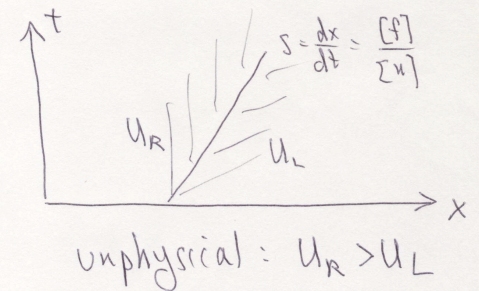 t
S = dx/dt = [f]/[u]
u_R
u_L
x
unphysical : u_R > u_L